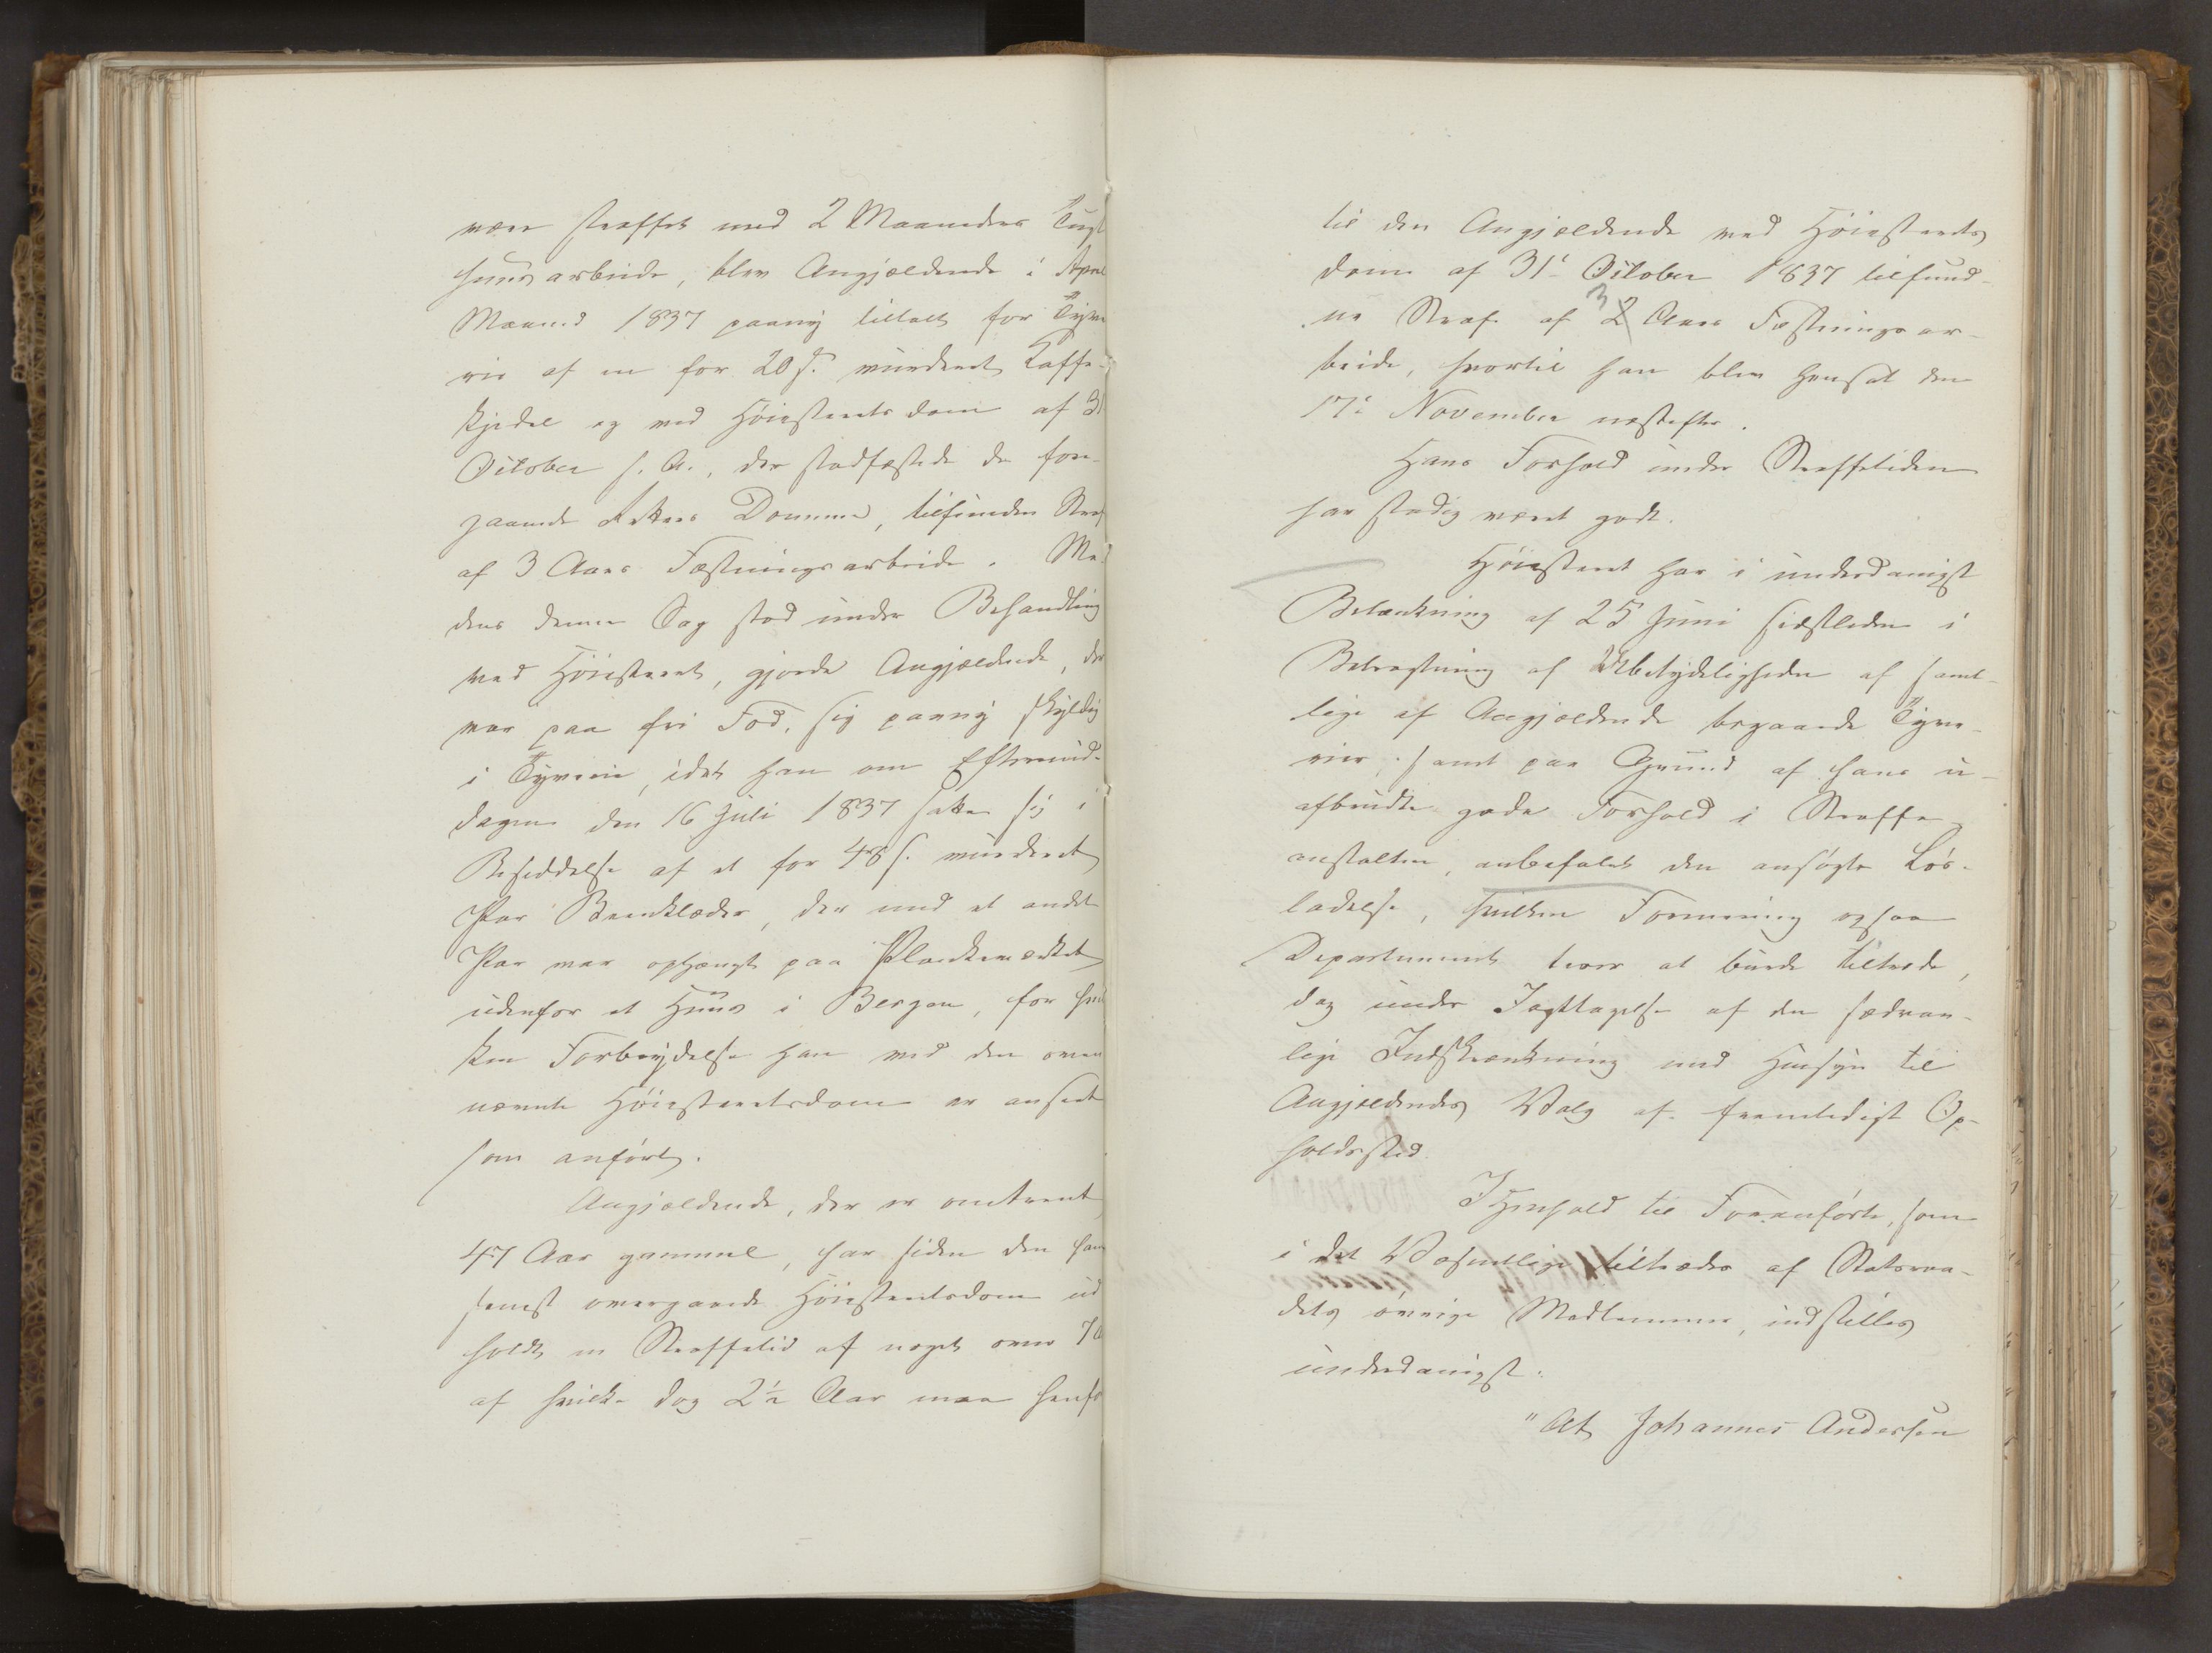 være straffet med 2 Maaneders Tugt
huusarbeide, blev Angjældende i April
Maaned 1837 paany tiltalt for Tyve
rie af en for 20 s. vurderet Kaffe-
kjedel og ved Høiesteretsdom af 31
October s. A., der stadfæstede de fore-
gaaende Retters Domme, tilfunden Straf
af 3 Aars Fæstningsarbeide. Me
dens denne Sag stod under Behandling
ved Høiesteret, gjorde Angjældende, der
var paa fri Fod, sig paany skyldig
i Tyverie, idet han om Eftermid-
dagen den 16 Juli 1837 satte sig i
Besiddelse af et for 48 s. vurderet
Par Beenklæder, der med et andet
Par var ophængt paa Plankeværket
udenfor et Huus i Bergen, for hvil
ken Forbrydelse han ved den oven
nævnte Høiesteretsdom er anseet
som anført.
Angjældende, der er omtrent
47 Aar gammel, har siden den ham
senest overgaaede Høiesteretsdom ud
holdt en Straffetid af noget over 7 A
af hvilke dog 2½ Aar maa henfø
til den Angjældende ved Høiesterets
dom af 31te October 1837 tilfund-
ne Straf af 3 2 Aars Fæstningsar-
beide, hvortil han blev hensat den
17de November næstefter.
Hans Forhold under Straffetiden
har stadig været godt.
Høiesteret har i underdanigst
Betænkning af 25 Juni sidstleden i
Betragtning af Ubetydeligheden af samt-
lige af Angjældende begaaede Tyve-
rier, samt paa Grund af hans u-
afbrudte gode Forhold i Straffe-
anstalten, anbefalet den ansøgte Løs-
ladelse, hvilken Formening ogsaa
Departementet troer at burde tiltræde,
dog under Iagttagelse af den sædvan-
lige Indskrænkning med Hensyn til
Angjældendes Valg af fremtidigt Op-
holdssted.
I Henhold til Foranførte, som
i det Væsentlige tiltrædes af Statsraa-
dets øvrige Medlemmer, indstilles
underdanigst:
"At Johannes Andersen